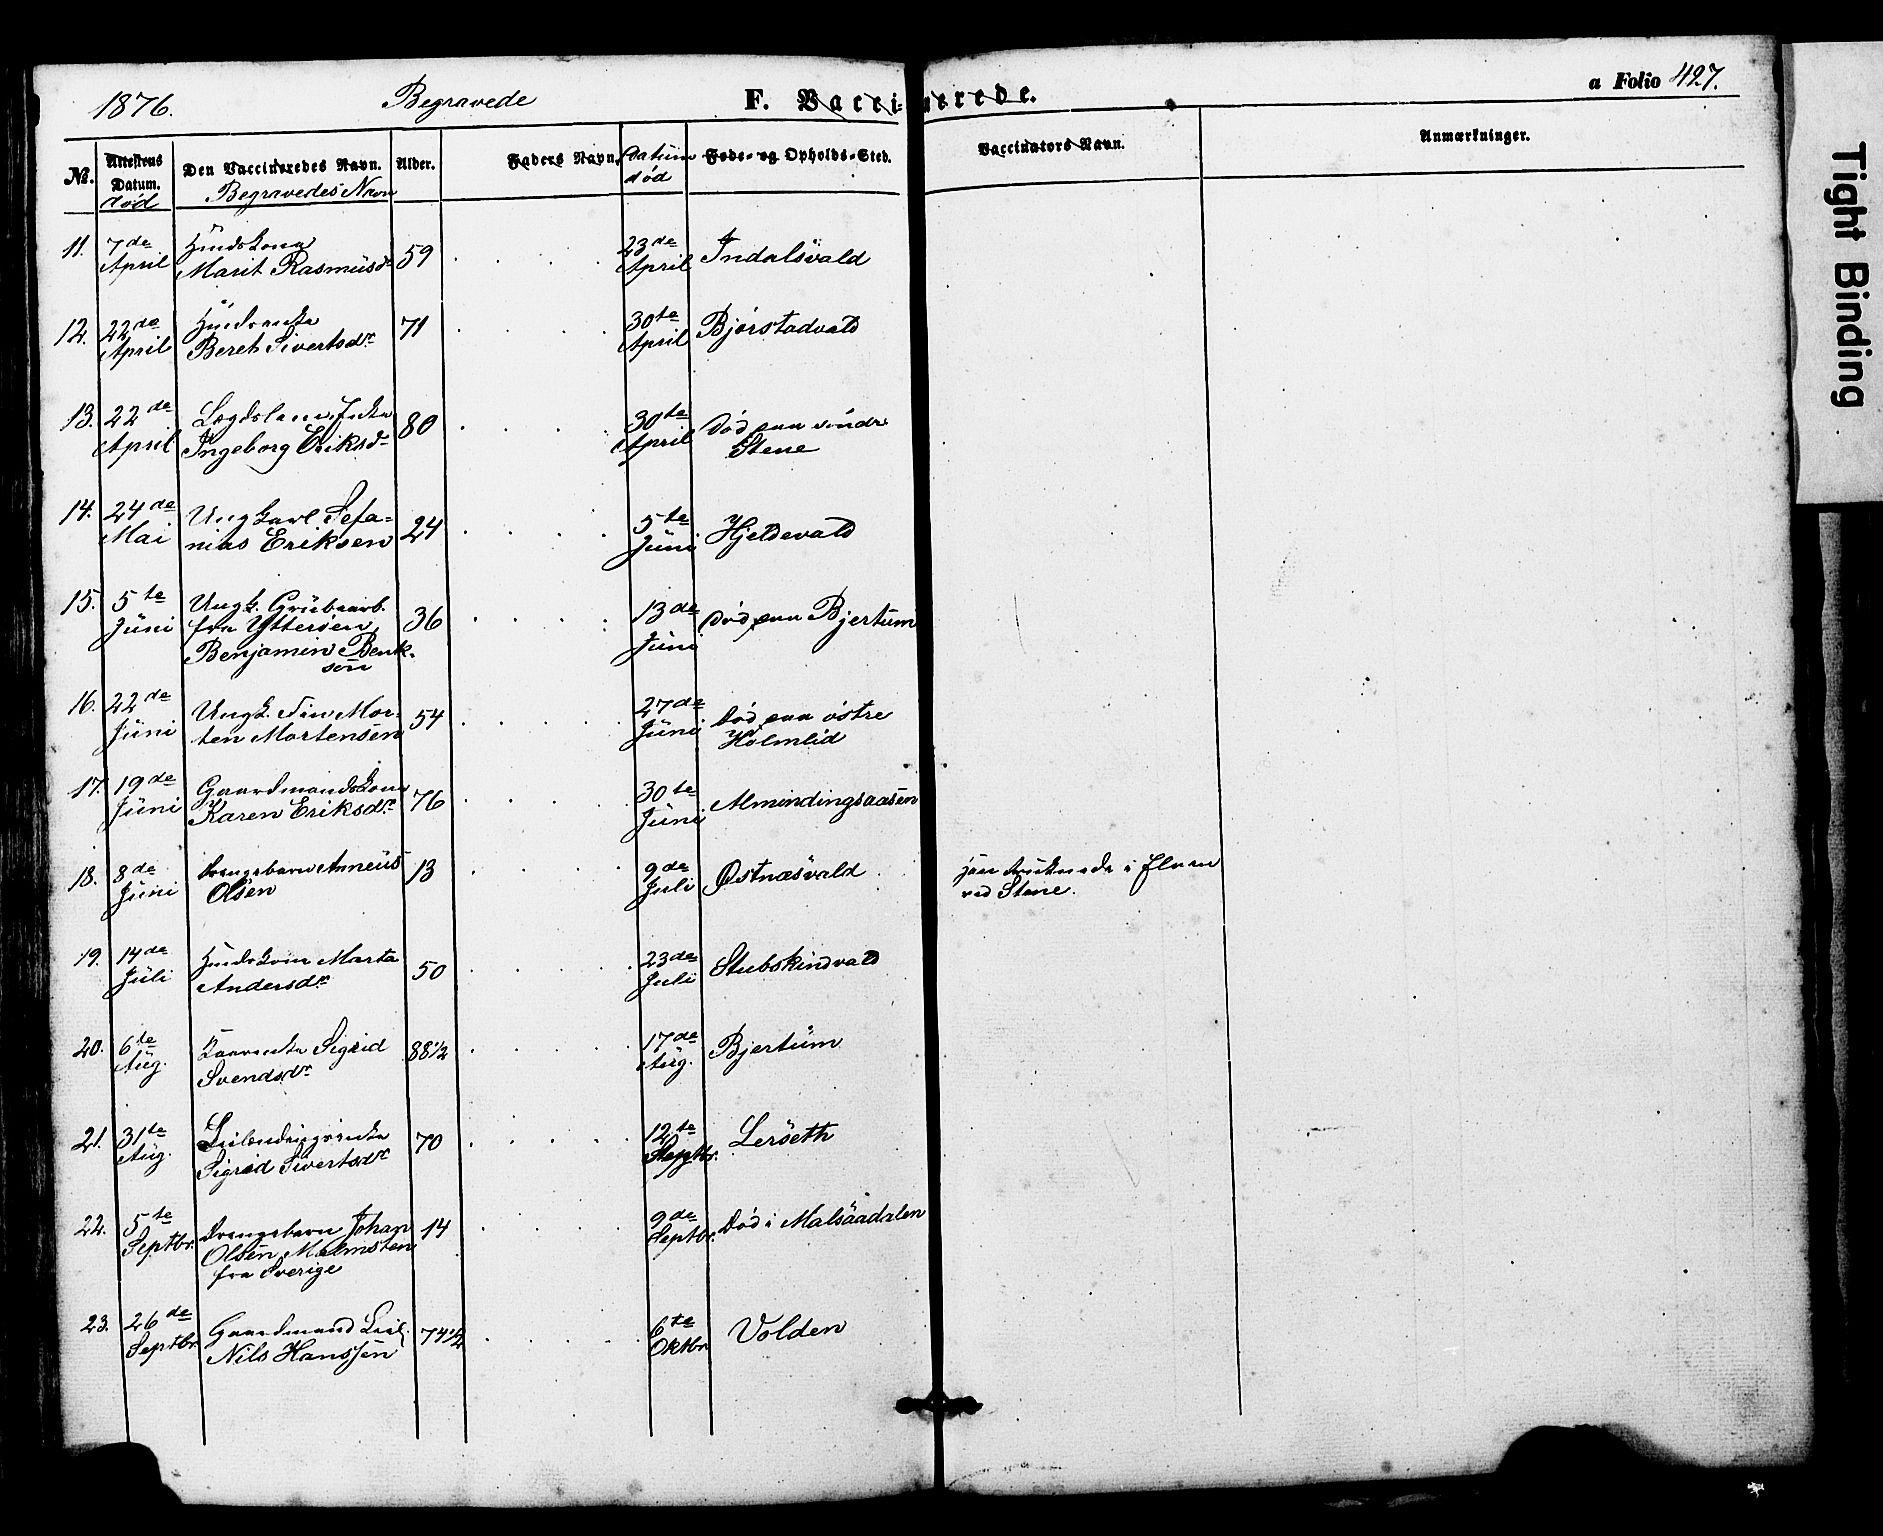 1876. Begravede F. Vaccinerede. a Folio 427.
No. Attestens Datum. død
Den Vaccineredes Navn. Begravedes Navn
Alder.
Faders Navn.
Datum død
Føde- og Opholds-Sted.
Vaccinators Navn.
Anmærkninger.
11. 7de April
Huuskona
Marit Rasmusdr
59
23de April
Indalsvald
12. 22de April
Beret Sivertsdr
71
30te April
Bjørstadvald
13. 22de April
Ingeborg Eriksdr
80
30te April
død paa søndr
Stene
14. 24de Mai
Ungkarl Sefa=
nias Eriksen
24
5te Juni
Hjeldevald
15. 5te Juni
Ungk. Grubearb.
fra Ytterøen,
Benjamin Benk-
søn
36
13de Juni
død paa Bjertum
16. 22de Juni
Ungk. Fin Mor-
ten Mortensen
54
27de Juni
død paa østre
Holmlid
17. 19de Juni
Gaardmandskona
Karen Eriksdr
76
30te Juni
Almindingsaasen
18. 8de Juni
Drengebarn Anneus
Olsen
13
9de Juli
Østnæsvald
druknede i Elven
ved Stene.
19. 14de Juli
Huuskona Marta
Andersdr
50
23de Juli
Stubskindvald
20. 6te Aug.
Kaarenke Sigrid
Svendsdr
88 1/2
17de Aug.
Bjertum
21. 31te Aug.
Leilendingsenke
Sigrid Sivertsdr
70
12te Septbr.
Lerseth
22. 5te Septbr.
Drengebarn Johan
Olsen Malmsten
fra Sverige
14
9de Septbr.
død i Malsaadalen
23. 26de Septbr.
Gaardmand Leil.
Nils Hanssen
74 1/2
6te Oktbr
Volden
Tight Binding